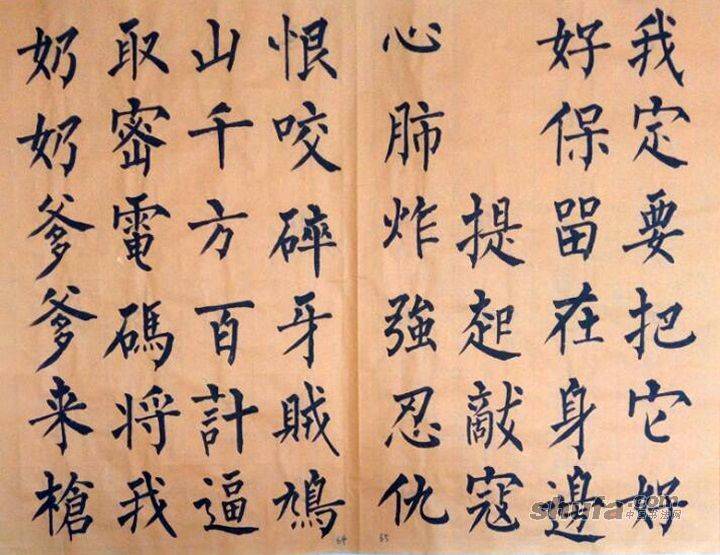 我定要把它好
好保留在身邊
提起敵寇
心肺炸強忍仇
恨咬碎牙賊鳩
山千方百計逼
取密電碼将我
奶奶爹爹来槍
65
64
shufa.com
中国书法网